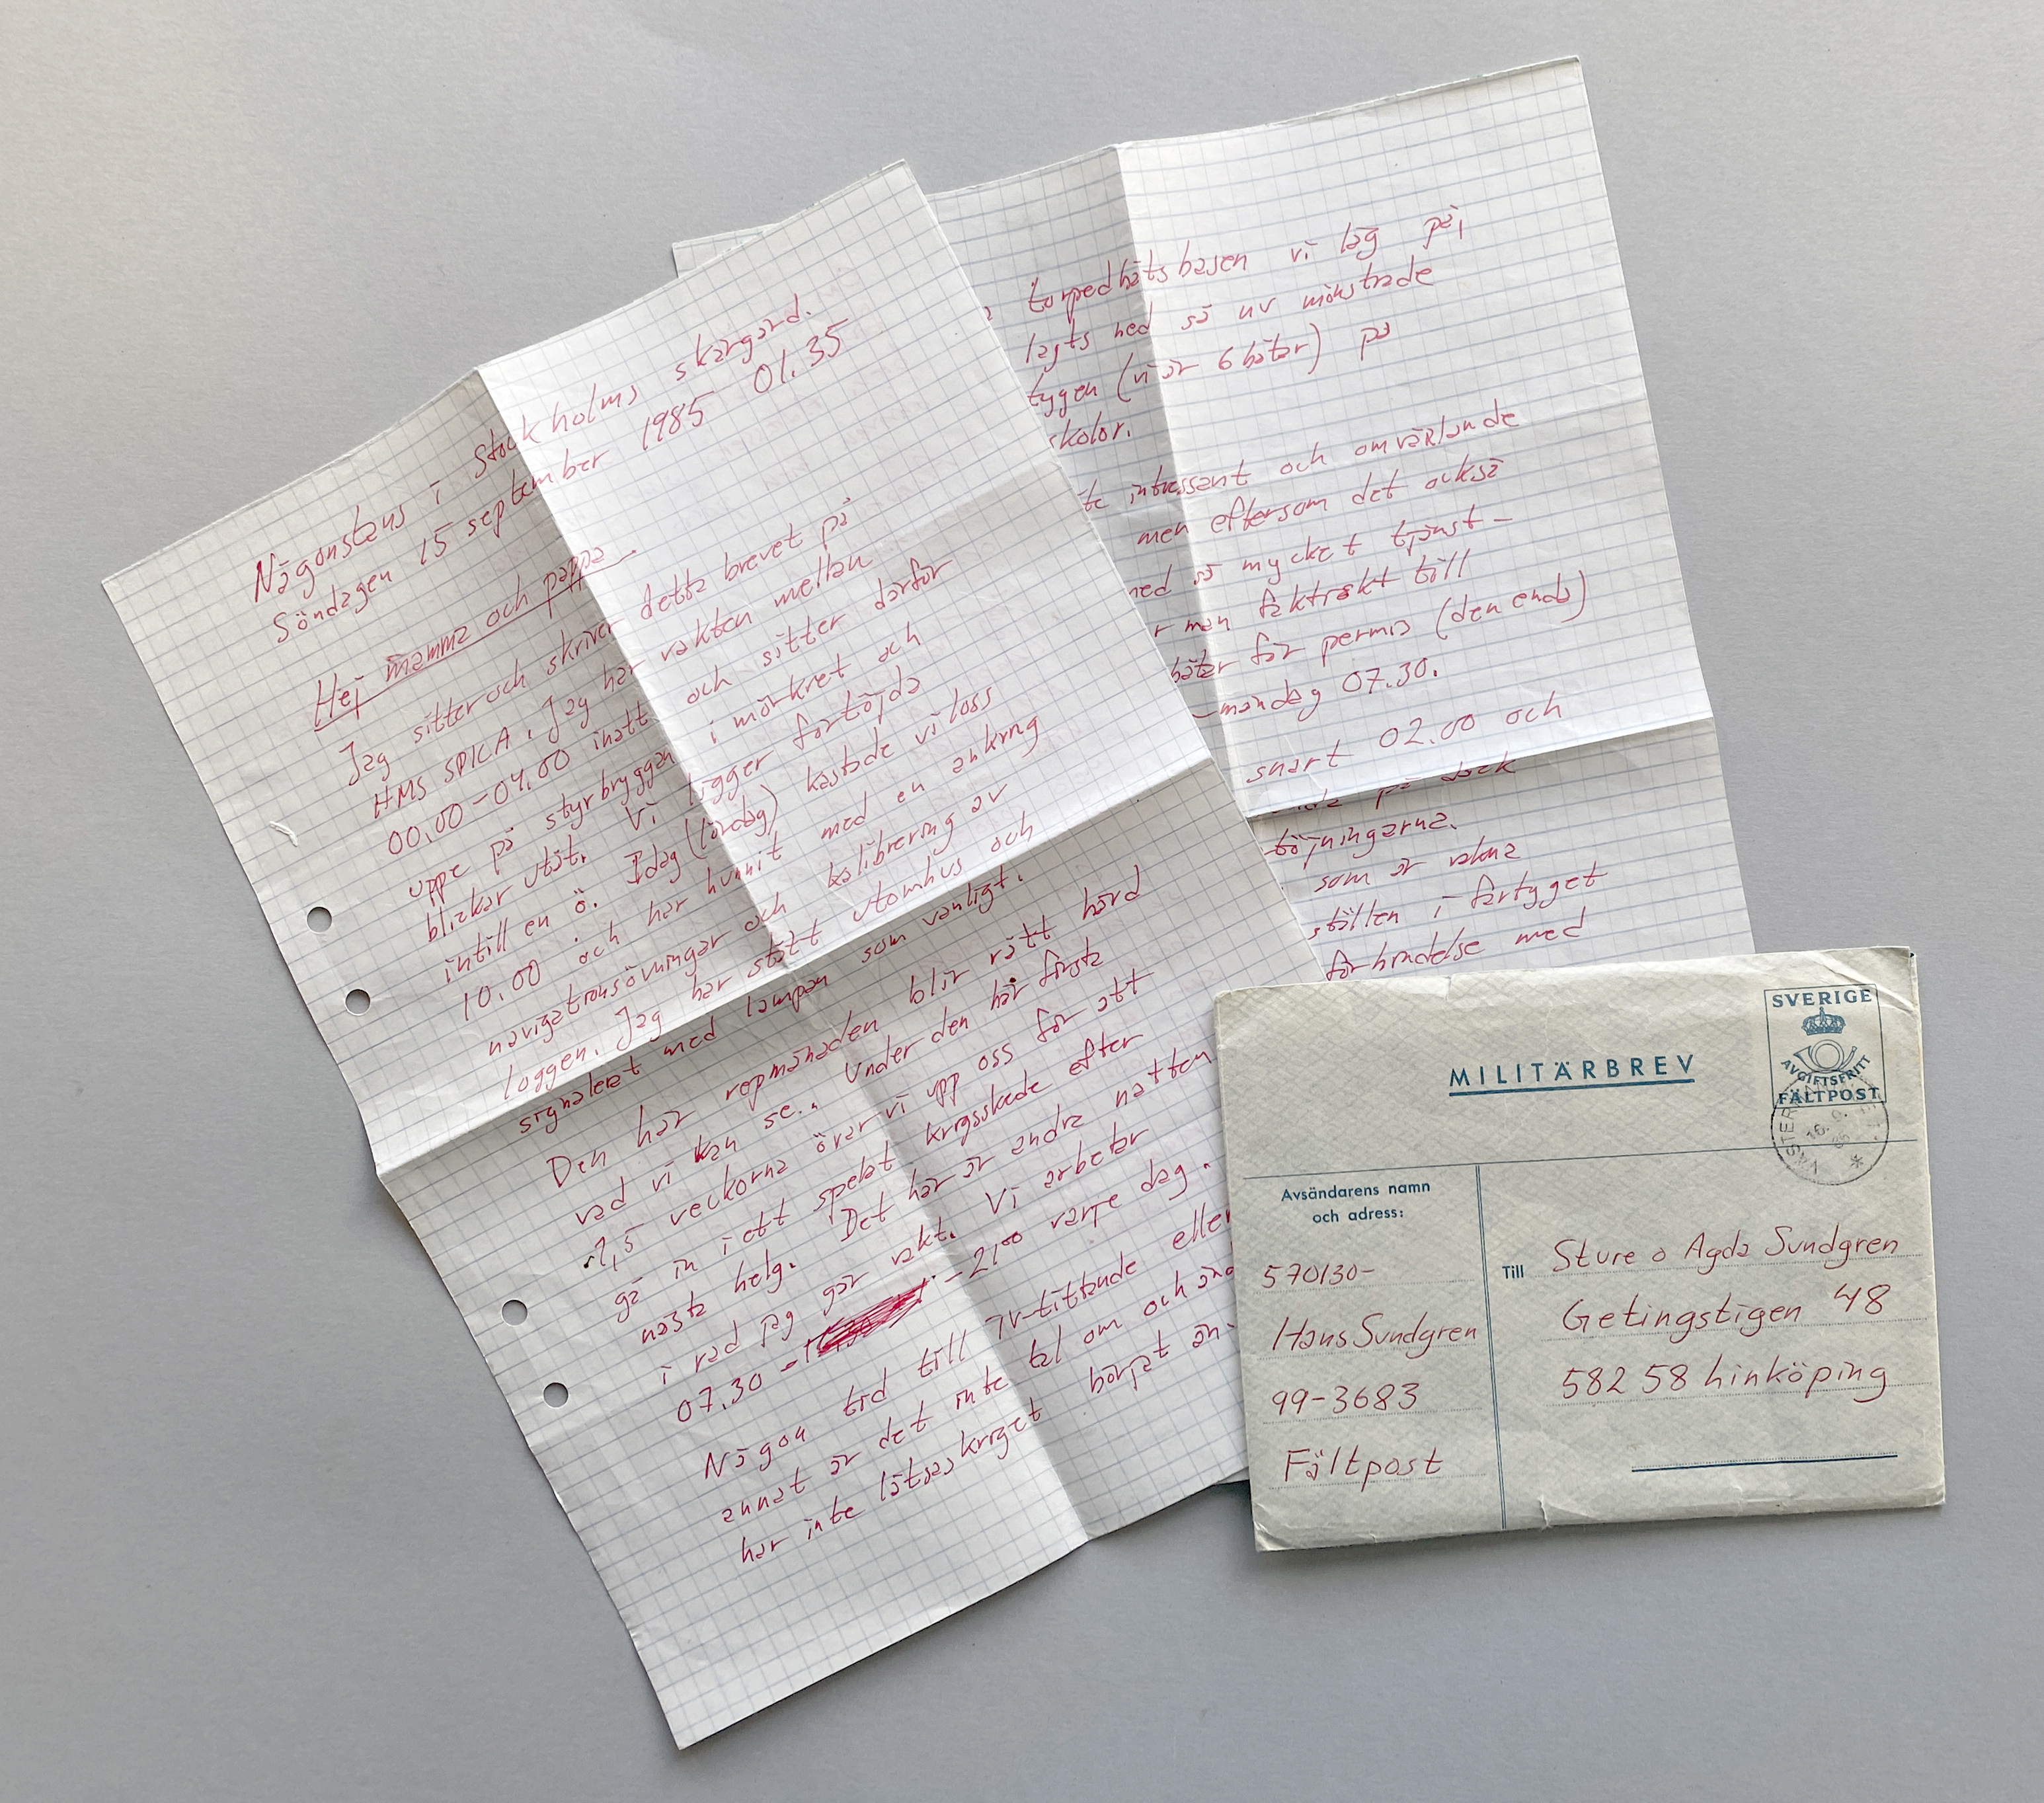 Någonstans i Stockholms skärgård.
Söndagen 15 september 1985 01.35
Hej mamma och pappa
Jag sitter och skriver detta brevet på
HMS SPICA. Jag har vakten mellan
00.00-04.00 inatt och sitter därför
uppe på styrbryggan i mörkret och
blickar utåt. Vi ligger förtöjda
intill en ö. Idag (lördag) kastade vi loss
10.00 och har hunnit med en ankring
navigationsövningar och kalibrering av
loggen. Jag har stått utomhus och
signalerat med lampan som vanligt.
Den här repmånaden blir rätt hård
vad vi kan se. Under den här första
1,5 veckorna övar vi upp oss för att
gå in i ett spelat krigsskede efter
nästa helg. Det här är andra natten
i rad jag går vakt. Vi arbetar
07.30 - 21⁰⁰ varje dag.
Någon tid till TV-tittande eller
annat är det inte tal om och ändå
har inte låtsaskriget börjat än.
torpedbåtsbasen vi låg på,
lagts ned så nu mönstrade
tygen (vi är 6 båtar) på
skolor.
te intressant och omväxlande
men eftersom det också
med så mycket tjänst-
r man faktiskt till
båtar för permis (den enda)
-måndag 07.30.
snart 02.00 och
på däck
töjningarna.
som är vakna
ställen i fartyget
förbindelse med
SVERIGE
AVGIFTSFRITT
FÄLTPOST
MILITÄRBREV
Avsändarens namn
och adress:
570130-
Hans Sundgren
99-3683
Fältpost
Till
Sture o Agda Sundgren
Getingstigen 48
582 58 Linköping